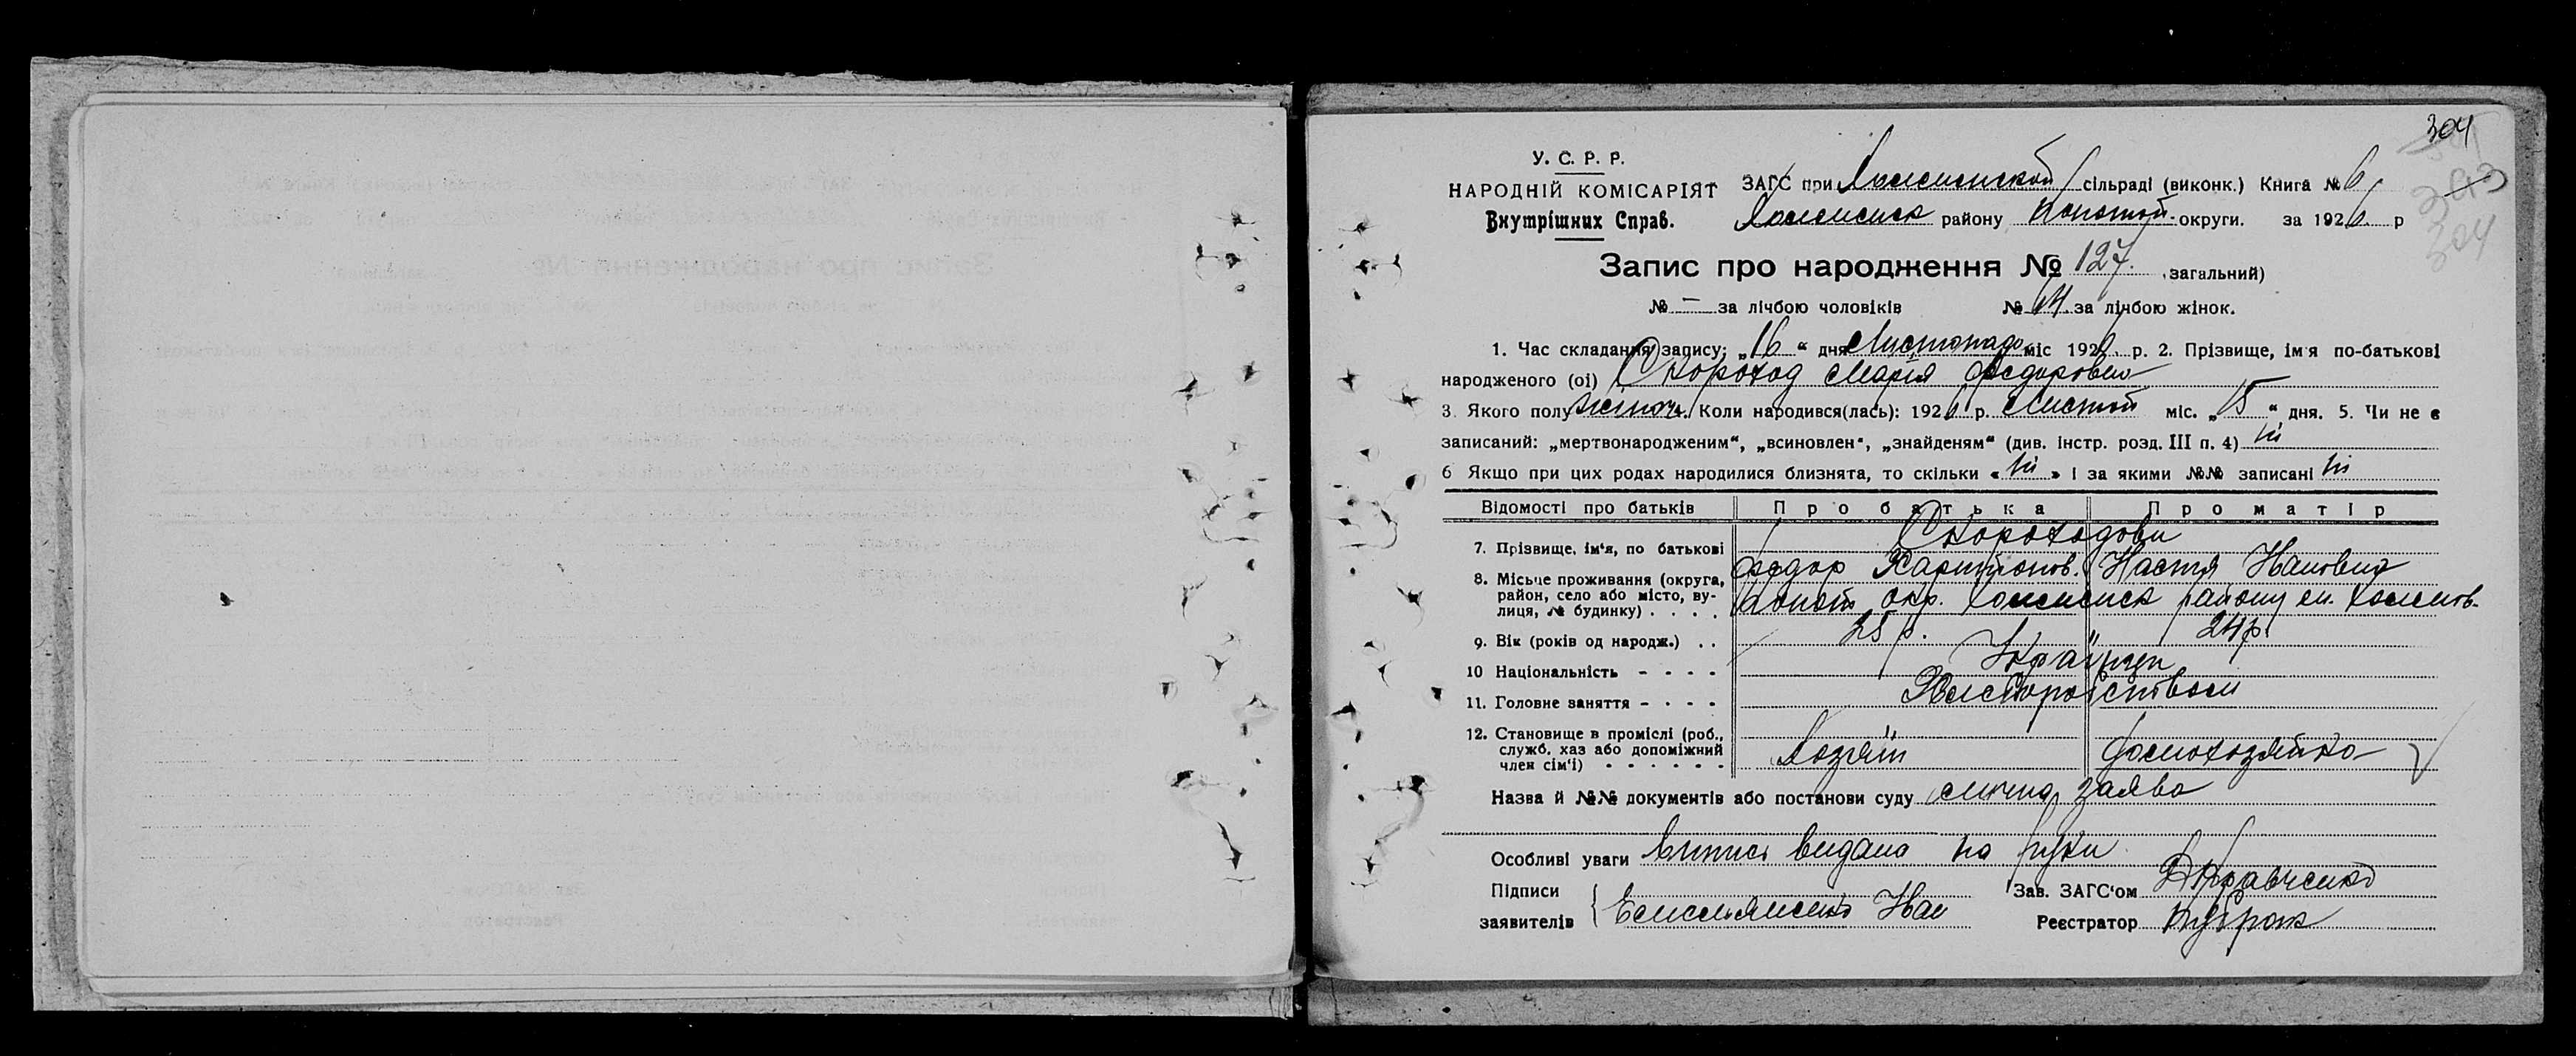 304
У. С. Р. Р.
НАРОДНІЙ КОМІСАРІЯТ
Внутрішних Справ.
ЗАГС при сільраді (виконк.) Книга № 6
району Конотоп. округи. за 1926 р
303
304
Запис про народження № 127. загальний)
№ — за лічбою чоловіків № 64. за лічбою жінок.
1. Час складання запису: „16“ дня Листопада міс 1926. р. 2. Прізвище, ім'я по-батькові
народженого (ої) Скороход Марія Федоровна
3. Якого полу жіноч. Коли народився(лась): 1926 р. Листоп міс. „15“ дня. 5. Чи не є
записаний: „мертвонародженим“, „всиновлен“, „знайденям“ (див. інстр. розд. III п. 4) ні
6 Якщо при цих родах народилися близнята, то скільки « ні » і за якими №№ записані ні
Відомості про батьків Про батька Про матір
7. Прізвище, ім'я, по батькові Скороходови
Федор Харитонов. Настя Ивановна
8. Місьце проживання (округа, район, село або місто, вулиця, № будинку) . . . . Коноп окр. району
9. Вік (років од народж.) . . 25 р. 24 р.
10 Національність - - - - Українци
11. Головне заняття - - - -
12. Становище в промислі (роб., служб. хаз або допоміжний член сім'ї) . . . . . . Хозяїн Домохозяйка
Назва й №№ документів або постанови суду заява
Особливі уваги Випись видана на руки
Підписи
заявителів
Зав. ЗАГС'ом Кравченко
Реєстратор